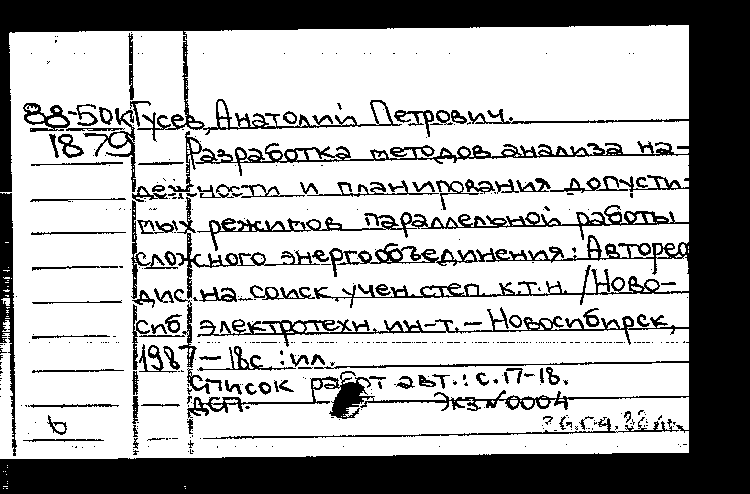 88-50к Гусев, Анатолий Петрович.
1879 Разработка методов анализа на-
дежности и планирования допусти-
мых режимов параллельной работы
сложного энергообъединения: Автореф
дис. на соиск. учен. степ. к.т.н. /Ново-
сиб. электротехн. ин-т. – Новосибирск,
1987. – 18с. : ил.
Список работ авт.: с. 17-18.
ДСП. Экз №0004
6 26.04.88